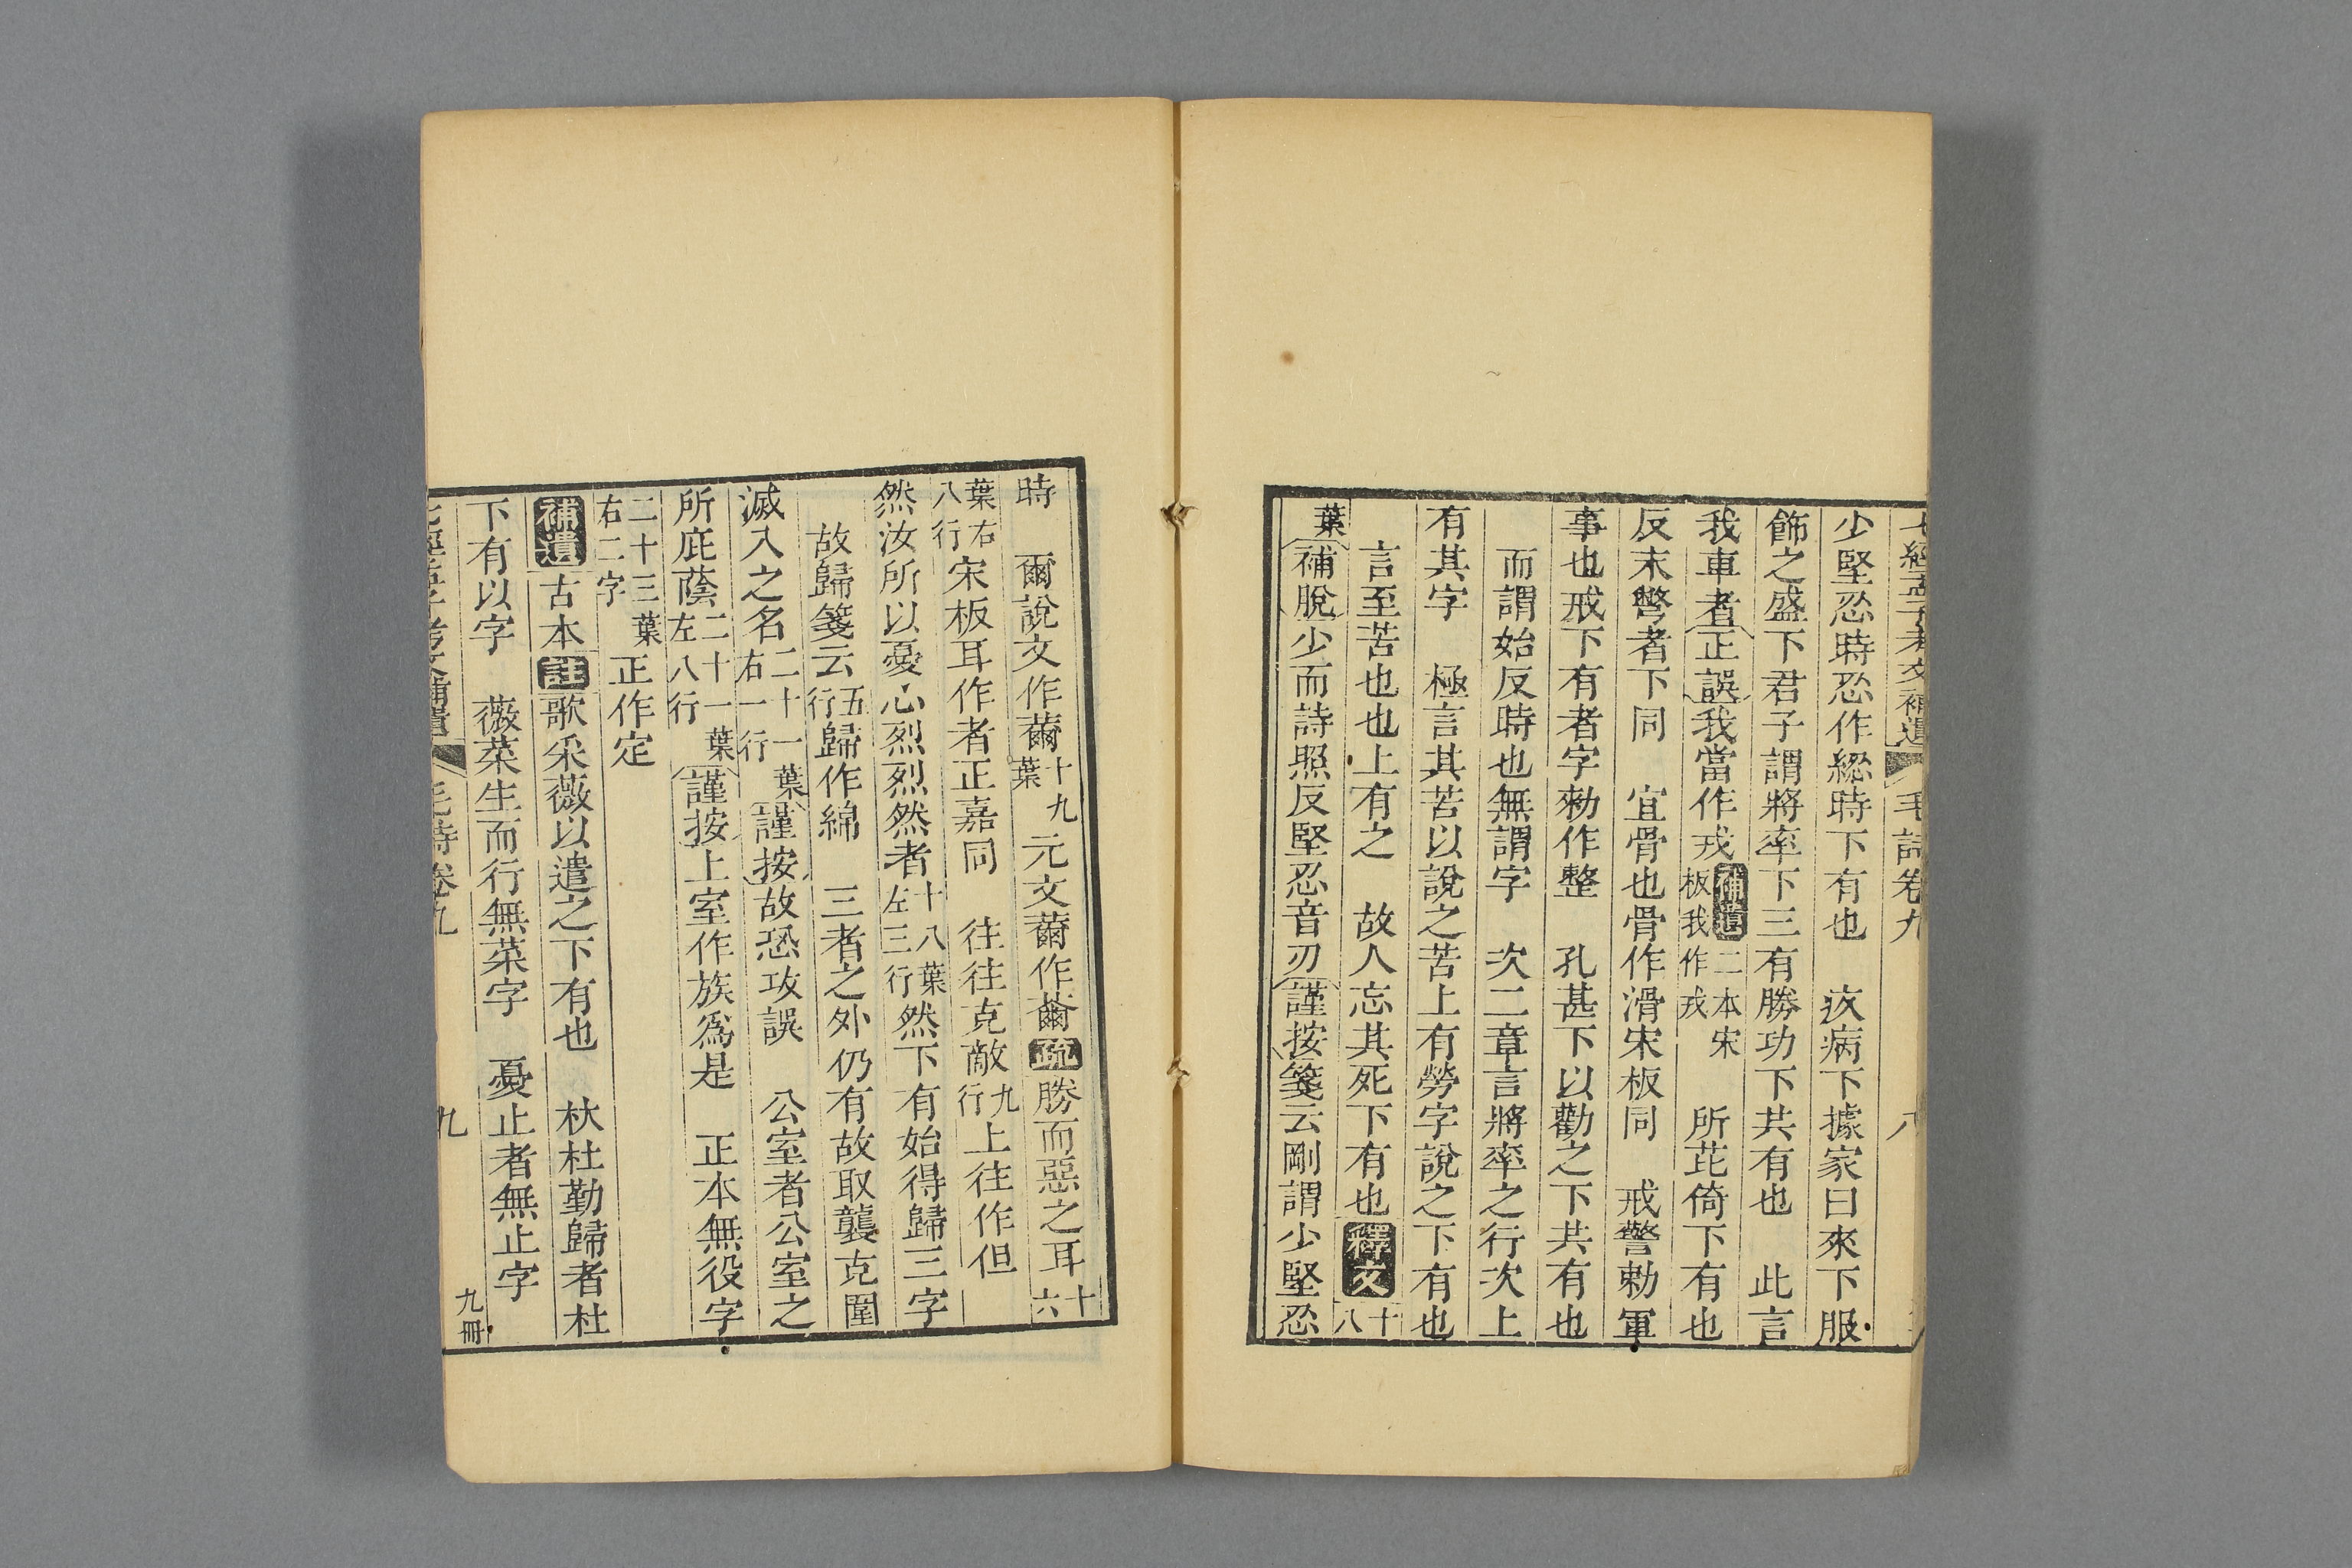 七經孟子考文補遺　毛詩卷九　八
少堅忍時恐作緫時下有也　疚病下據家曰來下服
飾之盛下君子謂將率下三有勝功下共有也　此言
我車者正誤我當作戎補遺二本宋板我作戎　所芘倚下有也
反末彆者下同　宜骨也骨作滑宋板同　戒警勅軍
事也戒下有者字勑作整　孔甚下以勸之下共有也
而謂始反時也無謂字　次二章言將率之行次上
有其字　極言其苦以說之苦上有勞字說之下有也
言至苦也也上有之　故人忘其死下有也釋文十八
葉補脫少而詩照反堅忍音刃謹按箋云剛謂少堅忍
時　爾說文作薾十九葉元文薾作薾疏勝而惡之耳十六
葉右八行宋板耳作者正嘉同　往往克敵九行上往作但
然汝所以憂心烈烈然者十八葉左三行然下有始得歸三字
故歸箋云五行歸作綿　三者之外仍有故取襲克圍
滅入之名二十一葉右一行謹按故恐攻誤　公室者公室之
所庇蔭二十一葉左八行謹按上室作族爲是　正本無役字
二十三葉右二字正作定
補遺古本註歌采薇以遣之下有也　杕杜勤歸者杜
下有以字　薇菜生而行無菜字　憂止者無止字
七經孟子考文補遺　毛詩卷九　九　九冊